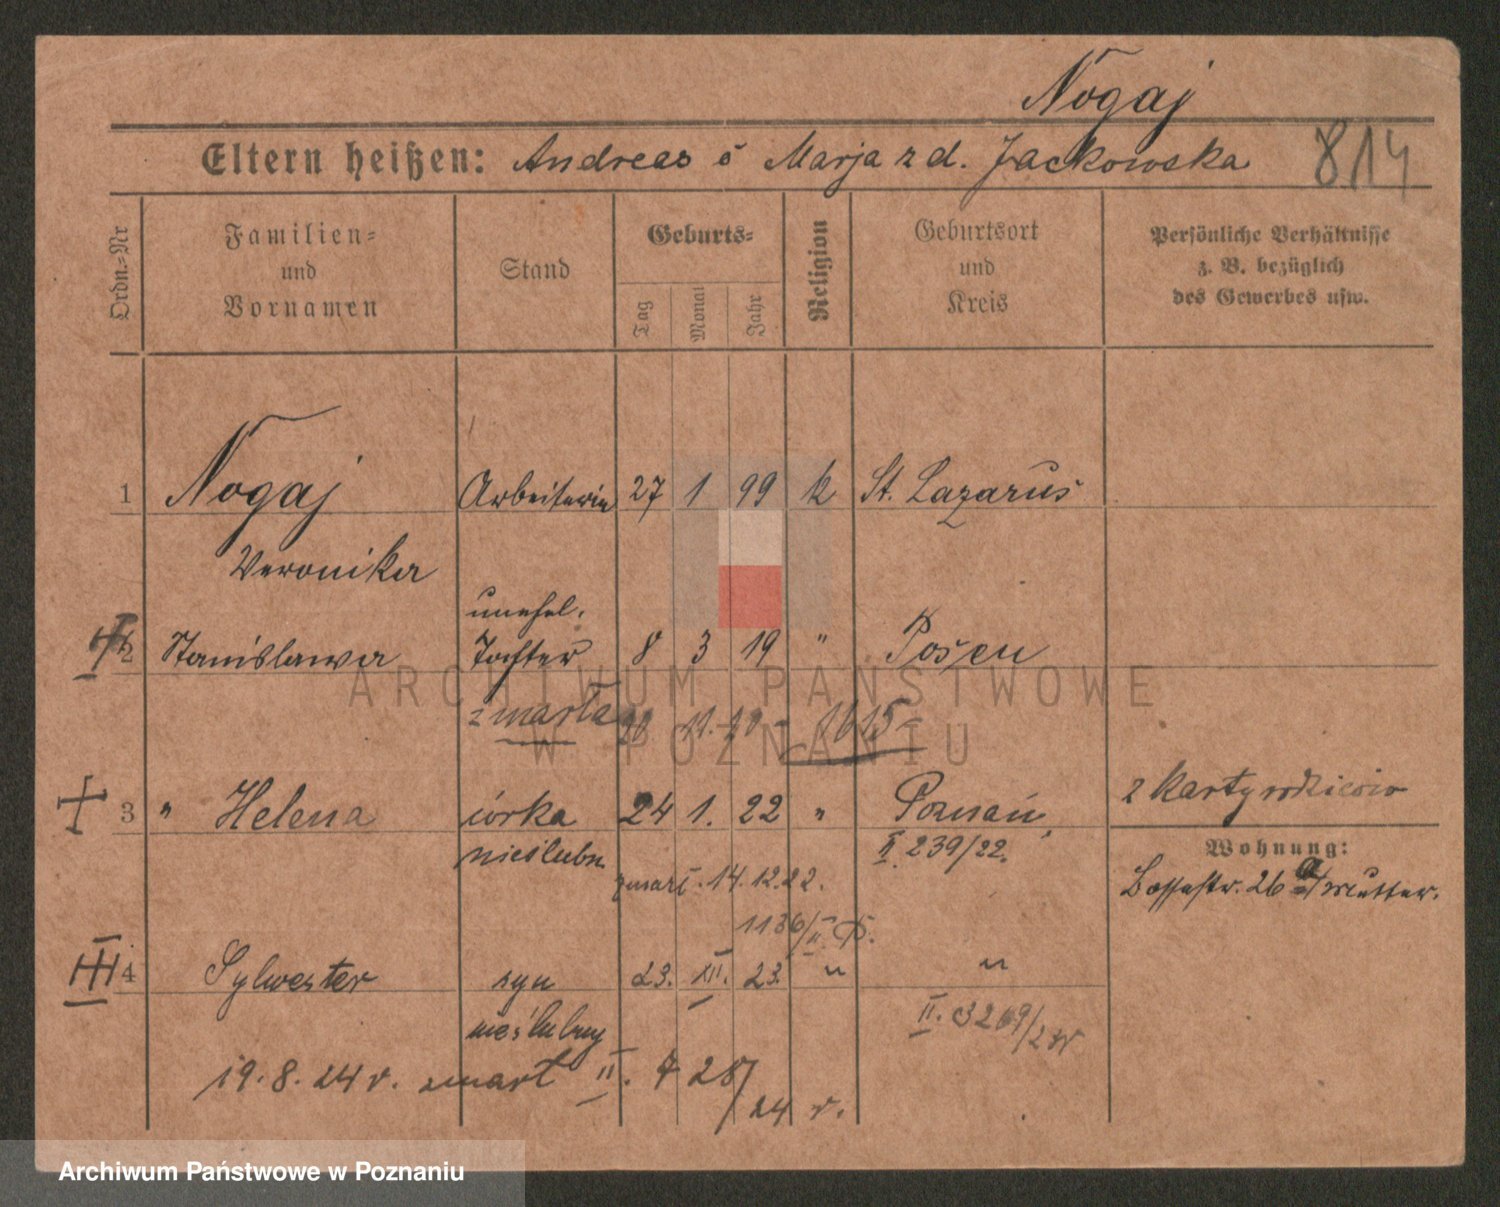 Nogaj
Eltern heißen: Andreas š Marja z d. Jackowska 814
Ordn.=Nr
Familien=
und
Vornamen
Stand
Geburts=
Tag
Monat
Jahr
Religion
Geburtsort
und
Kreis
Persönliche Verhältnisse
z. B. bezüglich
des Gewerbes usw.
1 Nogaj Arbeiterin 27 1 99 k St. Lazarus
Veronika
unehel.
2 Stanislawa Tochter 8 3 19 " Posen
ARCHIWUM PAŃSTWOWE
zmarła 11. 1615
W POZNANIU
3 " Helena córka 24 1. 22 " Poznań z karty rodziców
nieślubn II 239/22. Wohnung:
zmarł. 14. 12. 22. Bossestr. 26 a Mutter.
1136/II. P.
4 Sylwester syn 23. XII. 23. " "
nieślubny II. 3269/24
19. 8. 24 r. zmarł II. 728/
24 r.
Archiwum Państwowe w Poznaniu